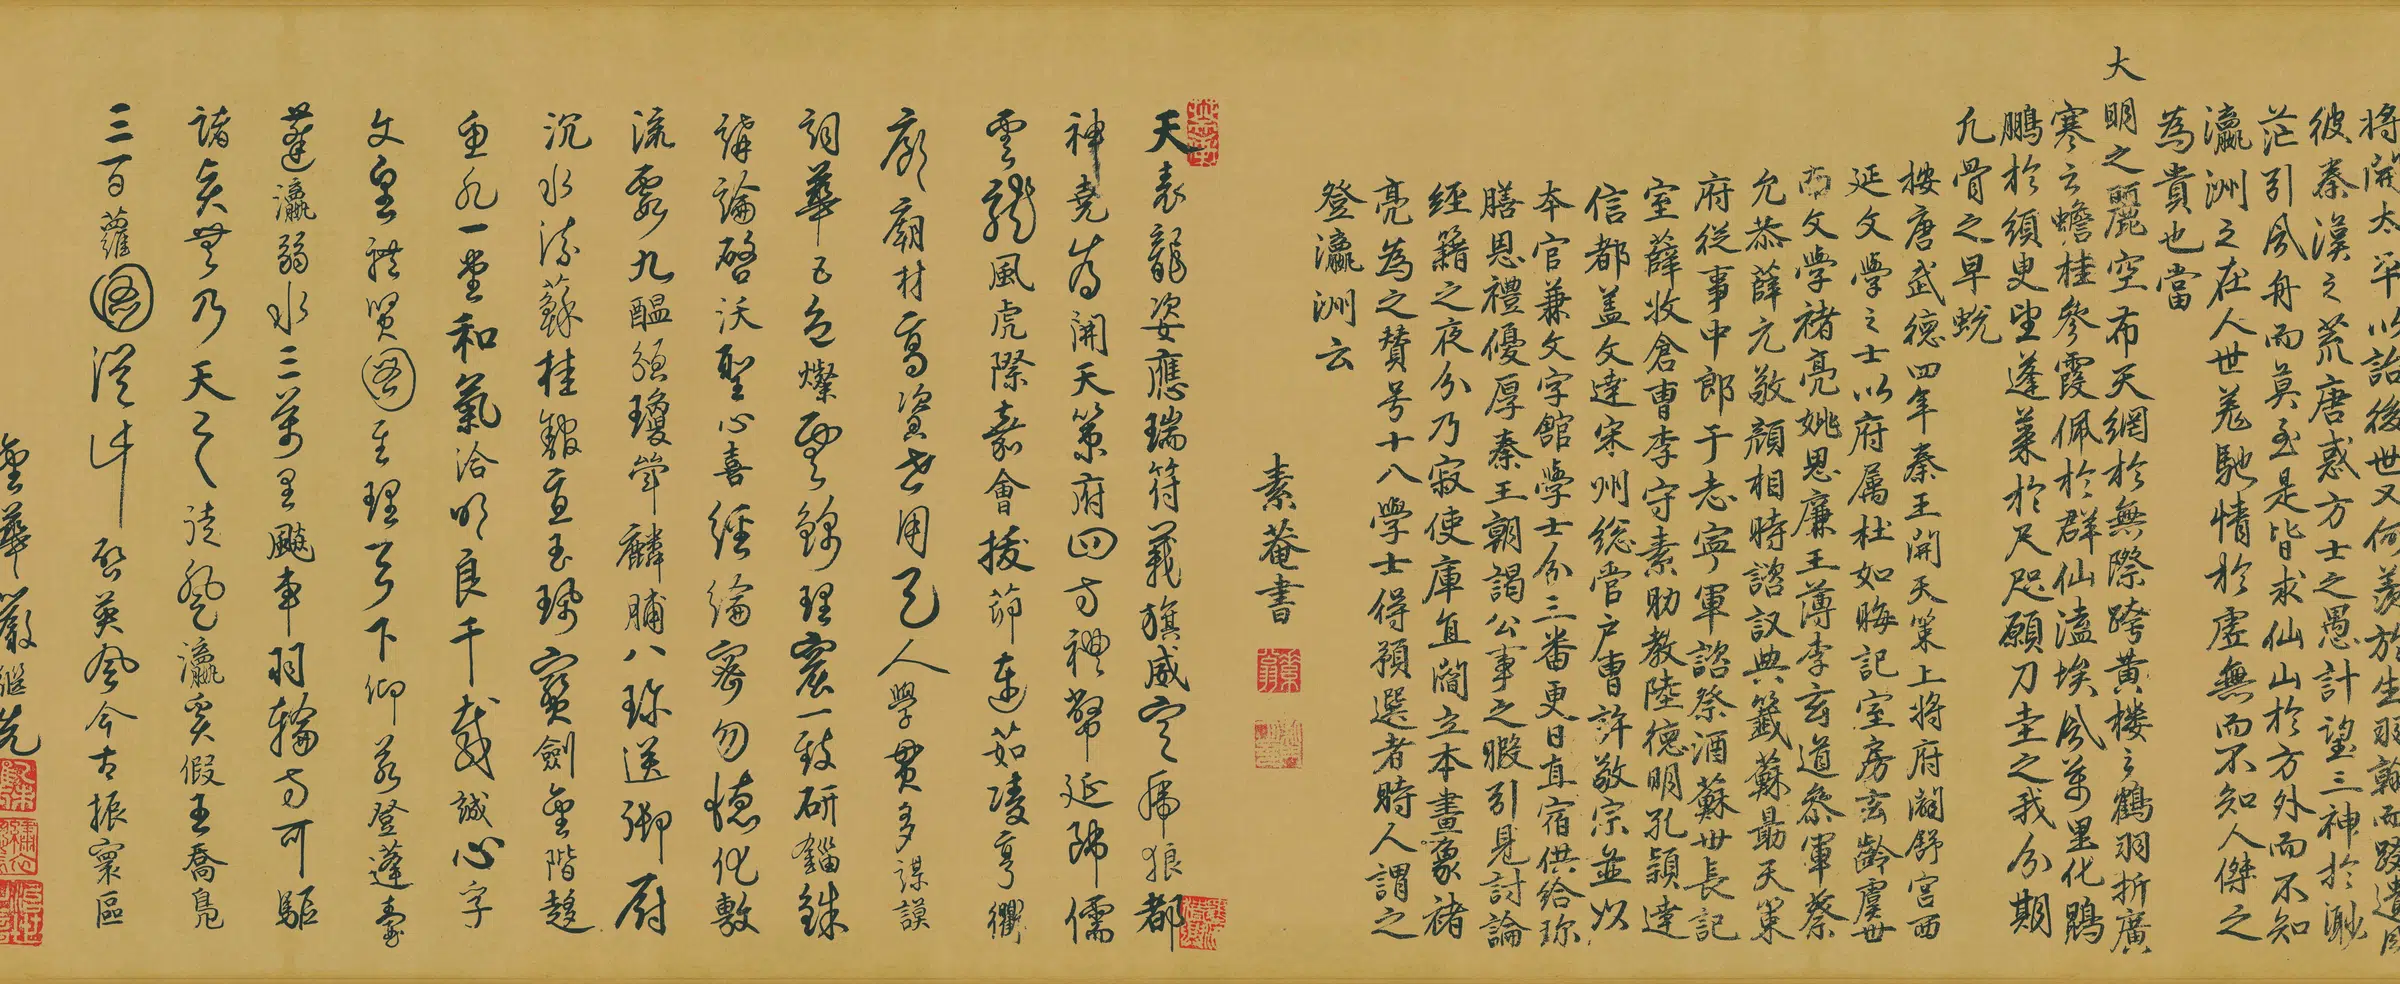 將開太平以詒後世又何羨於生羽翰而蹑遺風
彼秦漢之荒唐惑方士之愚計望三神於渺
茫引風舟而莫至是皆求仙山於方外而不知
瀛洲之在人世羌馳情於虛無而不知人傑之
為貴也當
大明之麗空布天網於無際跨黃樓之鶴羽折廣
寒之蟾桂參霞佩於群仙溘埃風萬里化鵾
鵬於須臾望蓬萊於尺咫願刀圭之我分期
凡骨之早蛻
按唐武德四年秦王開天策上將府闢舒宮西
延文學之士以府属杜如晦記室房玄齡虞世
南文學褚亮姚思廉王薄李玄道叅軍蔡
允恭薛元敬顏相時諮議典籤蘇勗天策
府從事中郎于志寧軍諮祭酒蘇世長記
室薛收倉曹李守素助教陸德明孔穎達
信都盖文達宋州総管户曹許敬宗並以
本官兼文字館學士分三番更日直宿供給珎
膳恩禮優厚秦王朝謁公事之暇引見討論
經籍之夜分乃寂使庫直閻立本畫象褚
亮為之賛号十八學士得預選者時人謂之
登瀛洲云
素菴書
天表龍姿應瑞符義旗威定虎狼都
神堯為開天策府四方禮幣延師儒
雲龍風虎際嘉會拔茹連茹凌亨衢
廊廟材高資世用天人學貫多謀謨
詞華五色燦雲錦理窟一致研錙銖
講論啓沃聖心喜經綸密勿德化敷
流霞九醖頒瓊斝麟脯八珍送御厨
沉水流蘇桂館直玉珮寶劍金階趨
魚水一堂和氣洽明良千載誠心孚
文皇禮賢圖至理天下仰慕登蓬壺
蓬瀛弱水三萬里飈車羽輪方可驅
諸矣無乃天之徒飛瀛奚假王喬鳧
三百蘿圖從此啓英風今古振寰區
金華嚴繼先